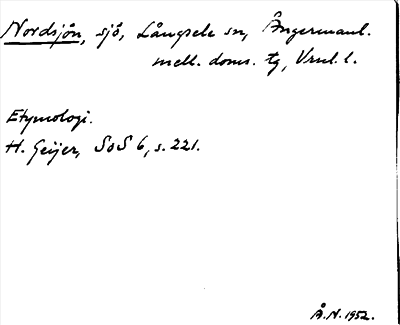 Nordsjön, sjö, Långsele sn, Ångermanl.
mell. doms. tg, Vnl. l.
Etymologi.
H. Geijer, SoS 6, s. 221.
Å.N. 1952.